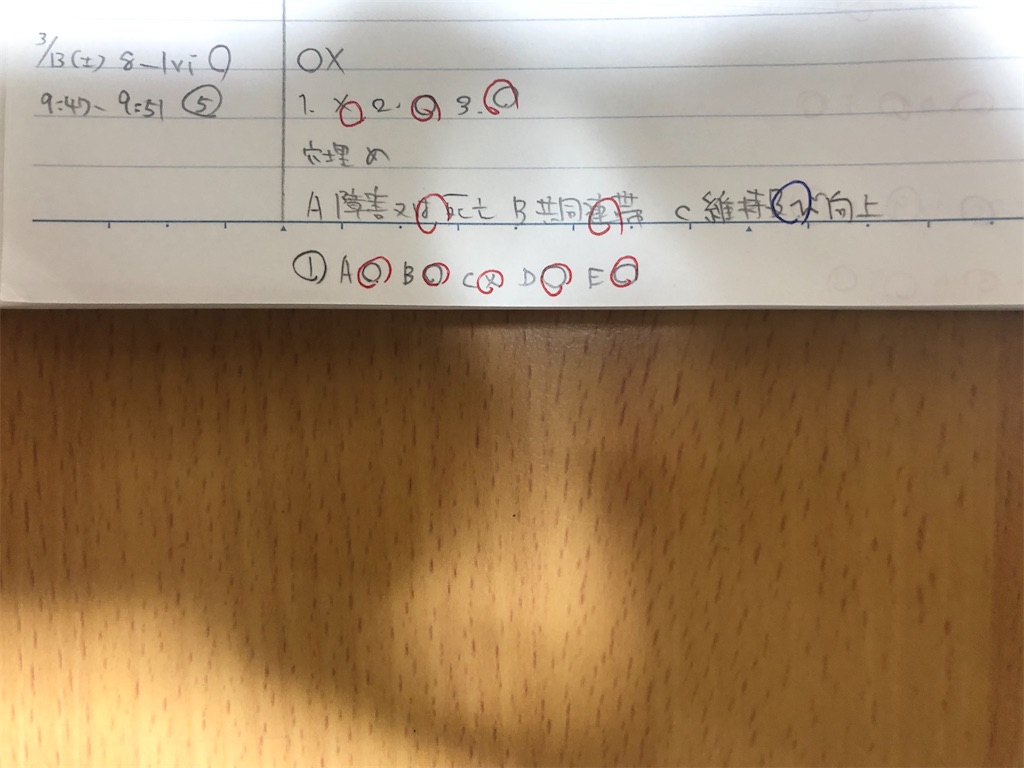 3/13(土) 8-1vi ○
9:47~9:51 ⑤
○×
1. × 2. ○ 3. ○
穴埋め
A 障害又は死亡 B 共同連帯 C 維持及び向上
① A ○ B ○ C × D ○ E ○